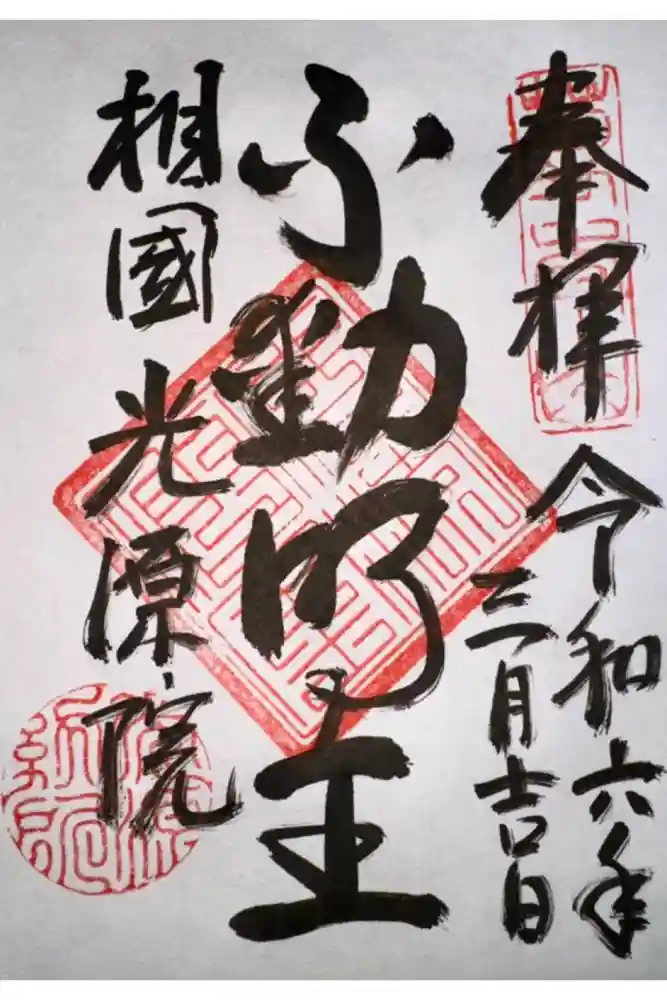 奉拝
令和六年
三月吉日
不動明王
相國光源院